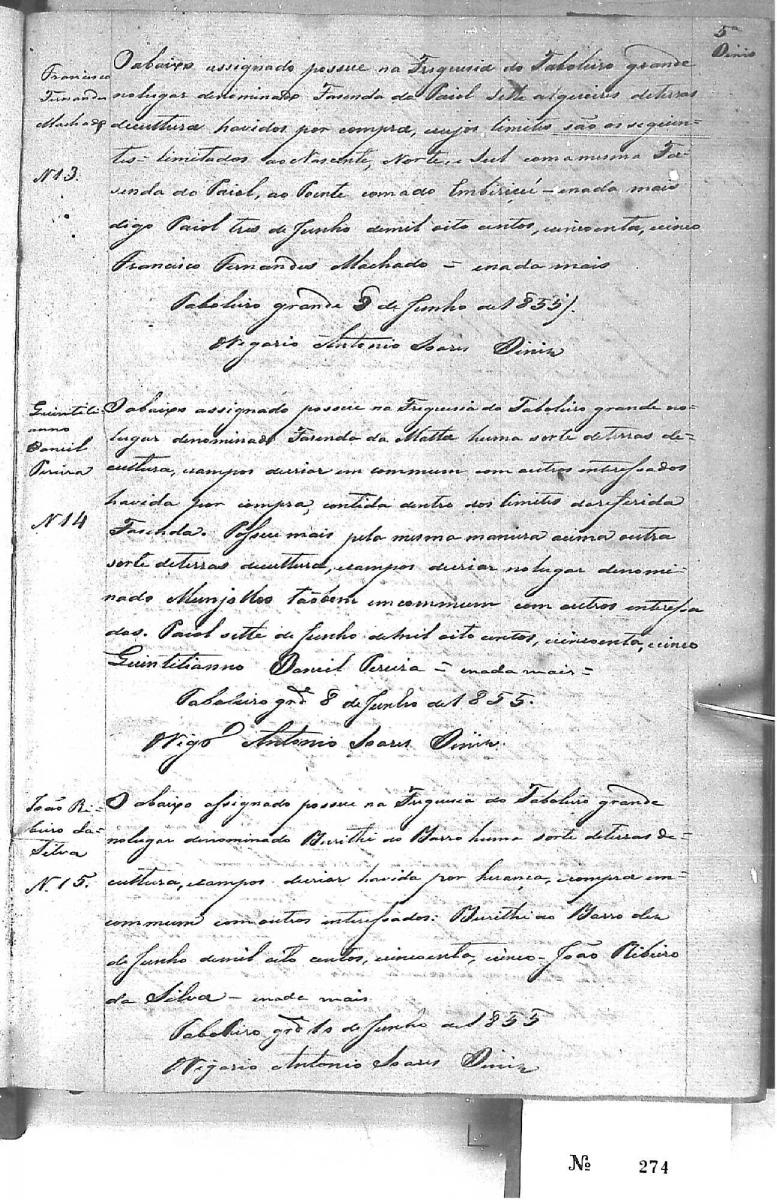 5
Diniz
Francisco
Fernandes
Machado
N13.
O abaixo assignado possue na Freguesia do Taboleiro grande
no lugar denominado Fasenda do Paiol sette alqueires de terras
de cultura havidos por compra, cujos limites são os seguin=
tes= limitados ao Nascente, Norte, e Sul com a mesma Fa=
senda do Paiol, ao Poente com a do Embiruçú - e nada mais
digo Paiol tres de Junho de mil oito centos, cincoenta, e cinco
Francisco Fernandes Machado = e nada mais
Taboleiro grande 8 de Junho de 1855
O Vigario Antonio Soares Diniz
Quintili=
anno
Daniel
Pereira
N14
O abaixo assignado possue na Freguesia do Taboleiro grande no=
lugar denominado Fasenda da Matta huma sorte de terras de=
cultura, e campos de criar em commum com outros interessados
havida por compra, contida dentro dos limites da referida
Fasenda. Possue mais pela mesma maneira a uma outra
sorte de terras de cultura, e campos de criar no lugar denomi=
nado Munjollos tãobem em commum com outros interessa
dos. Paiol sette de Junho de mil oito centos, e cincoenta, e cinco
Quintilianno Daniel Pereira = e nada mais=
Taboleiro grde 8 de Junho de 1855.
O Vigro Antonio Soares Diniz.
João Ri=
beiro da=
Silva
N.15.
O abaixo assignado possue na Freguesia do Taboleiro grande
no lugar denominado Burithi do Barro huma sorte de terras de=
cultura, e campos de criar havida por herança, e compra em=
commum com outros interessados: Burithi do Barro dez
de Junho de mil oito centos, e cincoenta, e cinco - João Ribeiro
da Silva - e nada mais
Taboleiro grde 10 de Junho de 1855
O Vigario Antonio Soares Diniz
Nº 274